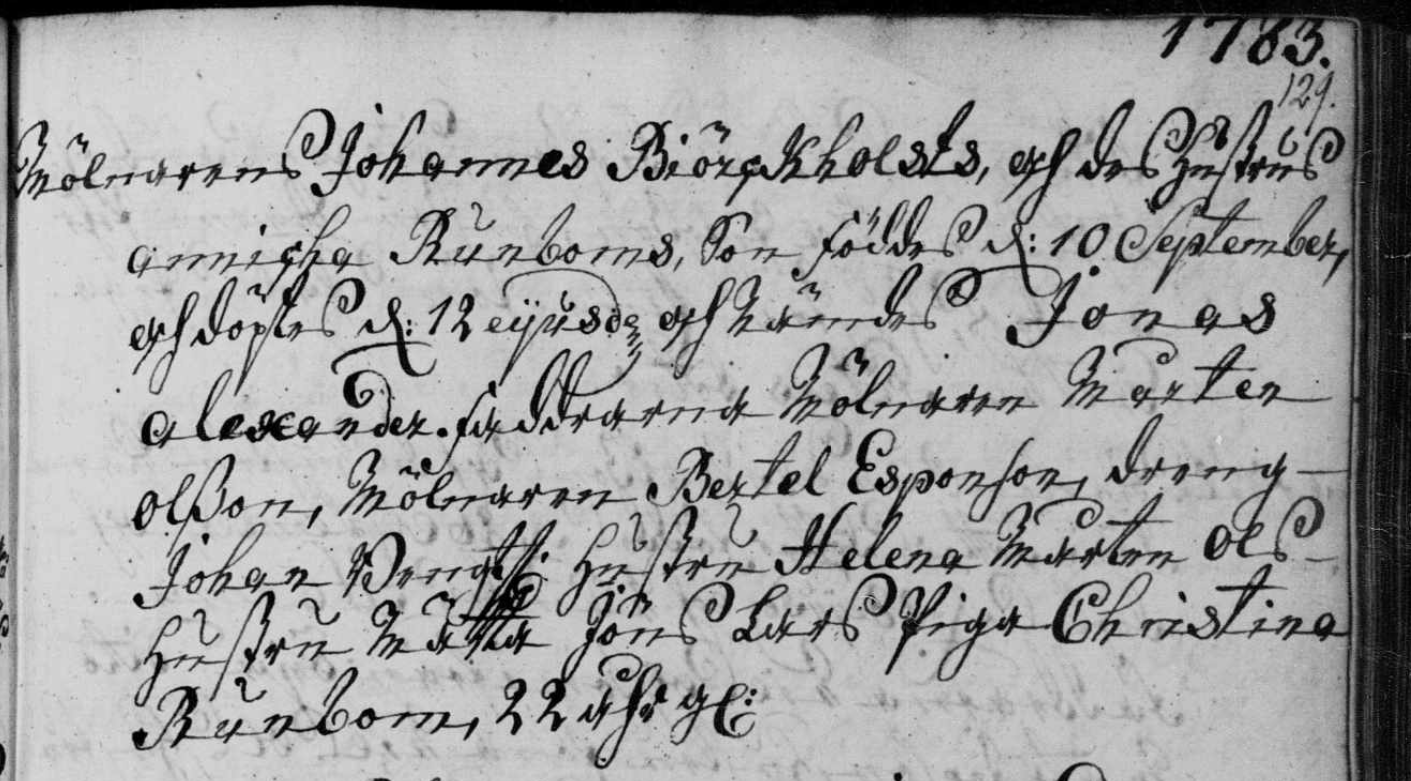 1783.
129.
Mölnarens Johannes Biörckholsts, och des hustrus
annicka Runboms, Son föddes d: 10 September,
och döptes d: 12 eijusd och nämdes Jonas
alexander. faddrarna Mölnaren Mårten
olsson, Mölnaren Bertel Esponson, dreng
Johan Bengts: hustru Helena Mårten Ols
hustru Mätta Jöns Lars Piga Christina
Runbom, 22 åhr gl: